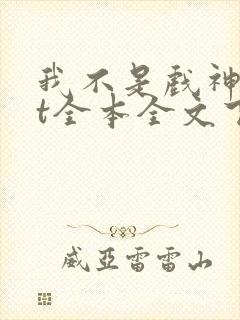 我不是戏神t
t全本全文下
威亚雷雷山